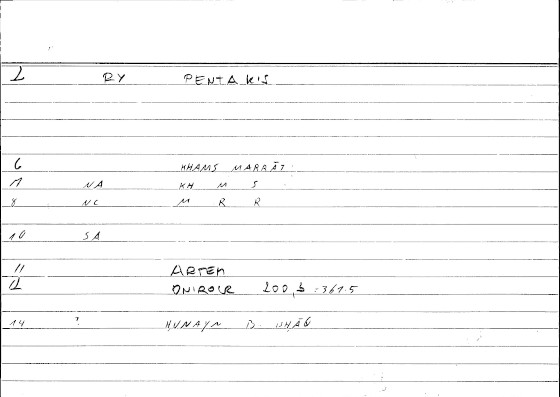 1 RY PENTAKIS
6 KHAMS MARRĀT
7 NA KH M S
8 NC M R R
10 SA
11 ARTEM
12 ONIROCR 200,5 : 361.5
14 ? HUNAYN B. ISHĀQ